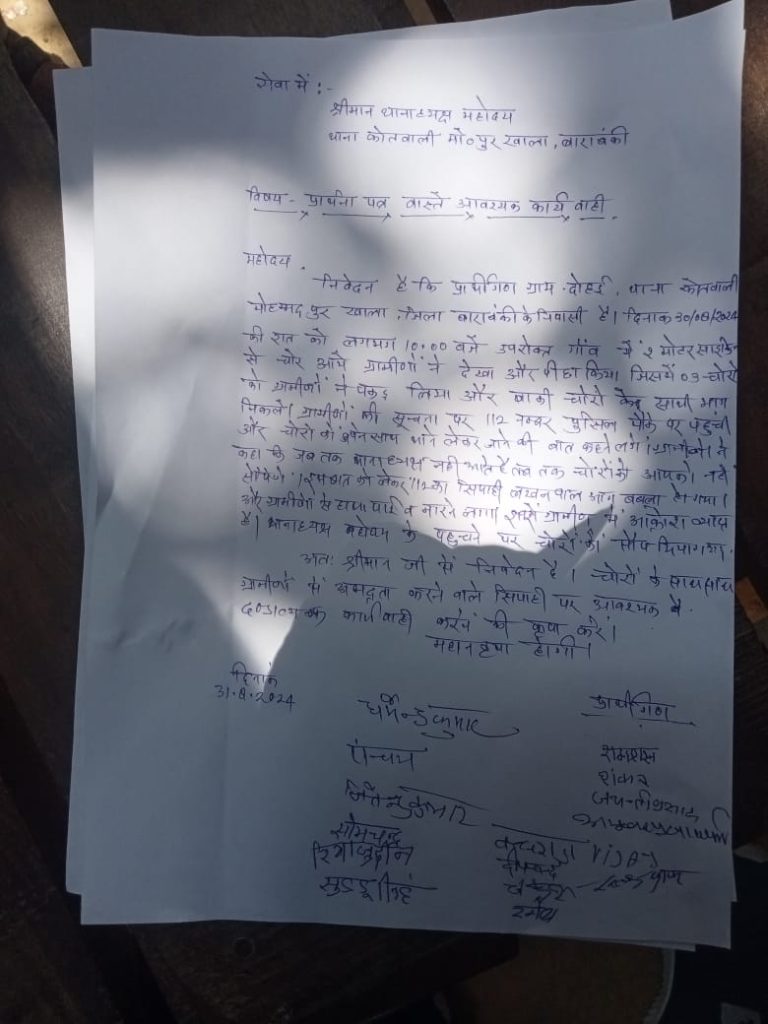 सेवा में :-
श्रीमान थानाध्यक्ष महोदय
थाना कोतवाली मो०पुर खाला, बाराबंकी
विषय - प्रार्थना पत्र वास्ते आवश्यक कार्यवाही
महोदय,
निवेदन है कि प्रार्थीगण ग्राम-दोहई, थाना कोतवाली
मोहम्मदपुर खाला, जिला बाराबंकी के निवासी हैं। दिनांक 30/08/2024
की रात को लगभग 10:00 बजे उपरोक्त गाँव में 2 मोटरसाइकिल
से चोर आये ग्रामीणों ने देखा और पीछा किया जिसमें 03-चोरों
को ग्रामीणों ने पकड़ लिया और बाकी चोरों के साथी भाग
निकले। ग्रामीणों की सूचना पर 112 नम्बर पुलिस मौके पर पहुंची
और चोरों को अपने साथ थाने लेकर जाने की बात कहने लगे। ग्रामीणों ने
कहा कि जब तक थानाध्यक्ष नहीं आते हैं तब तक चोरों को आपको नहीं
सौपेंगे। इस बात को लेकर 112 का सिपाही लखनपाल आग बबूला हो गया।
और ग्रामीणों से हाथापाई व मारने लगा। ग्रामीण में आक्रोश व्याप्त
है। थानाध्यक्ष महोदय के पहुचने पर चोरों को सौंप दिया गया।
अतः श्रीमान जी से निवेदन है। चोरों के साथ साथ
ग्रामीणों से अभद्रता करने वाले सिपाही पर आवश्यक व
दण्डात्मक कार्यवाही करने की कृपा करें।
महान कृपा होगी।
दिनांक
31.8.2024
प्रार्थीगण
धर्मेन्द्र कुमार
रामदास
शंकर
जितेन्द्र कुमार
सोमचन्द्र
गुड्डू सिंह
रमेश